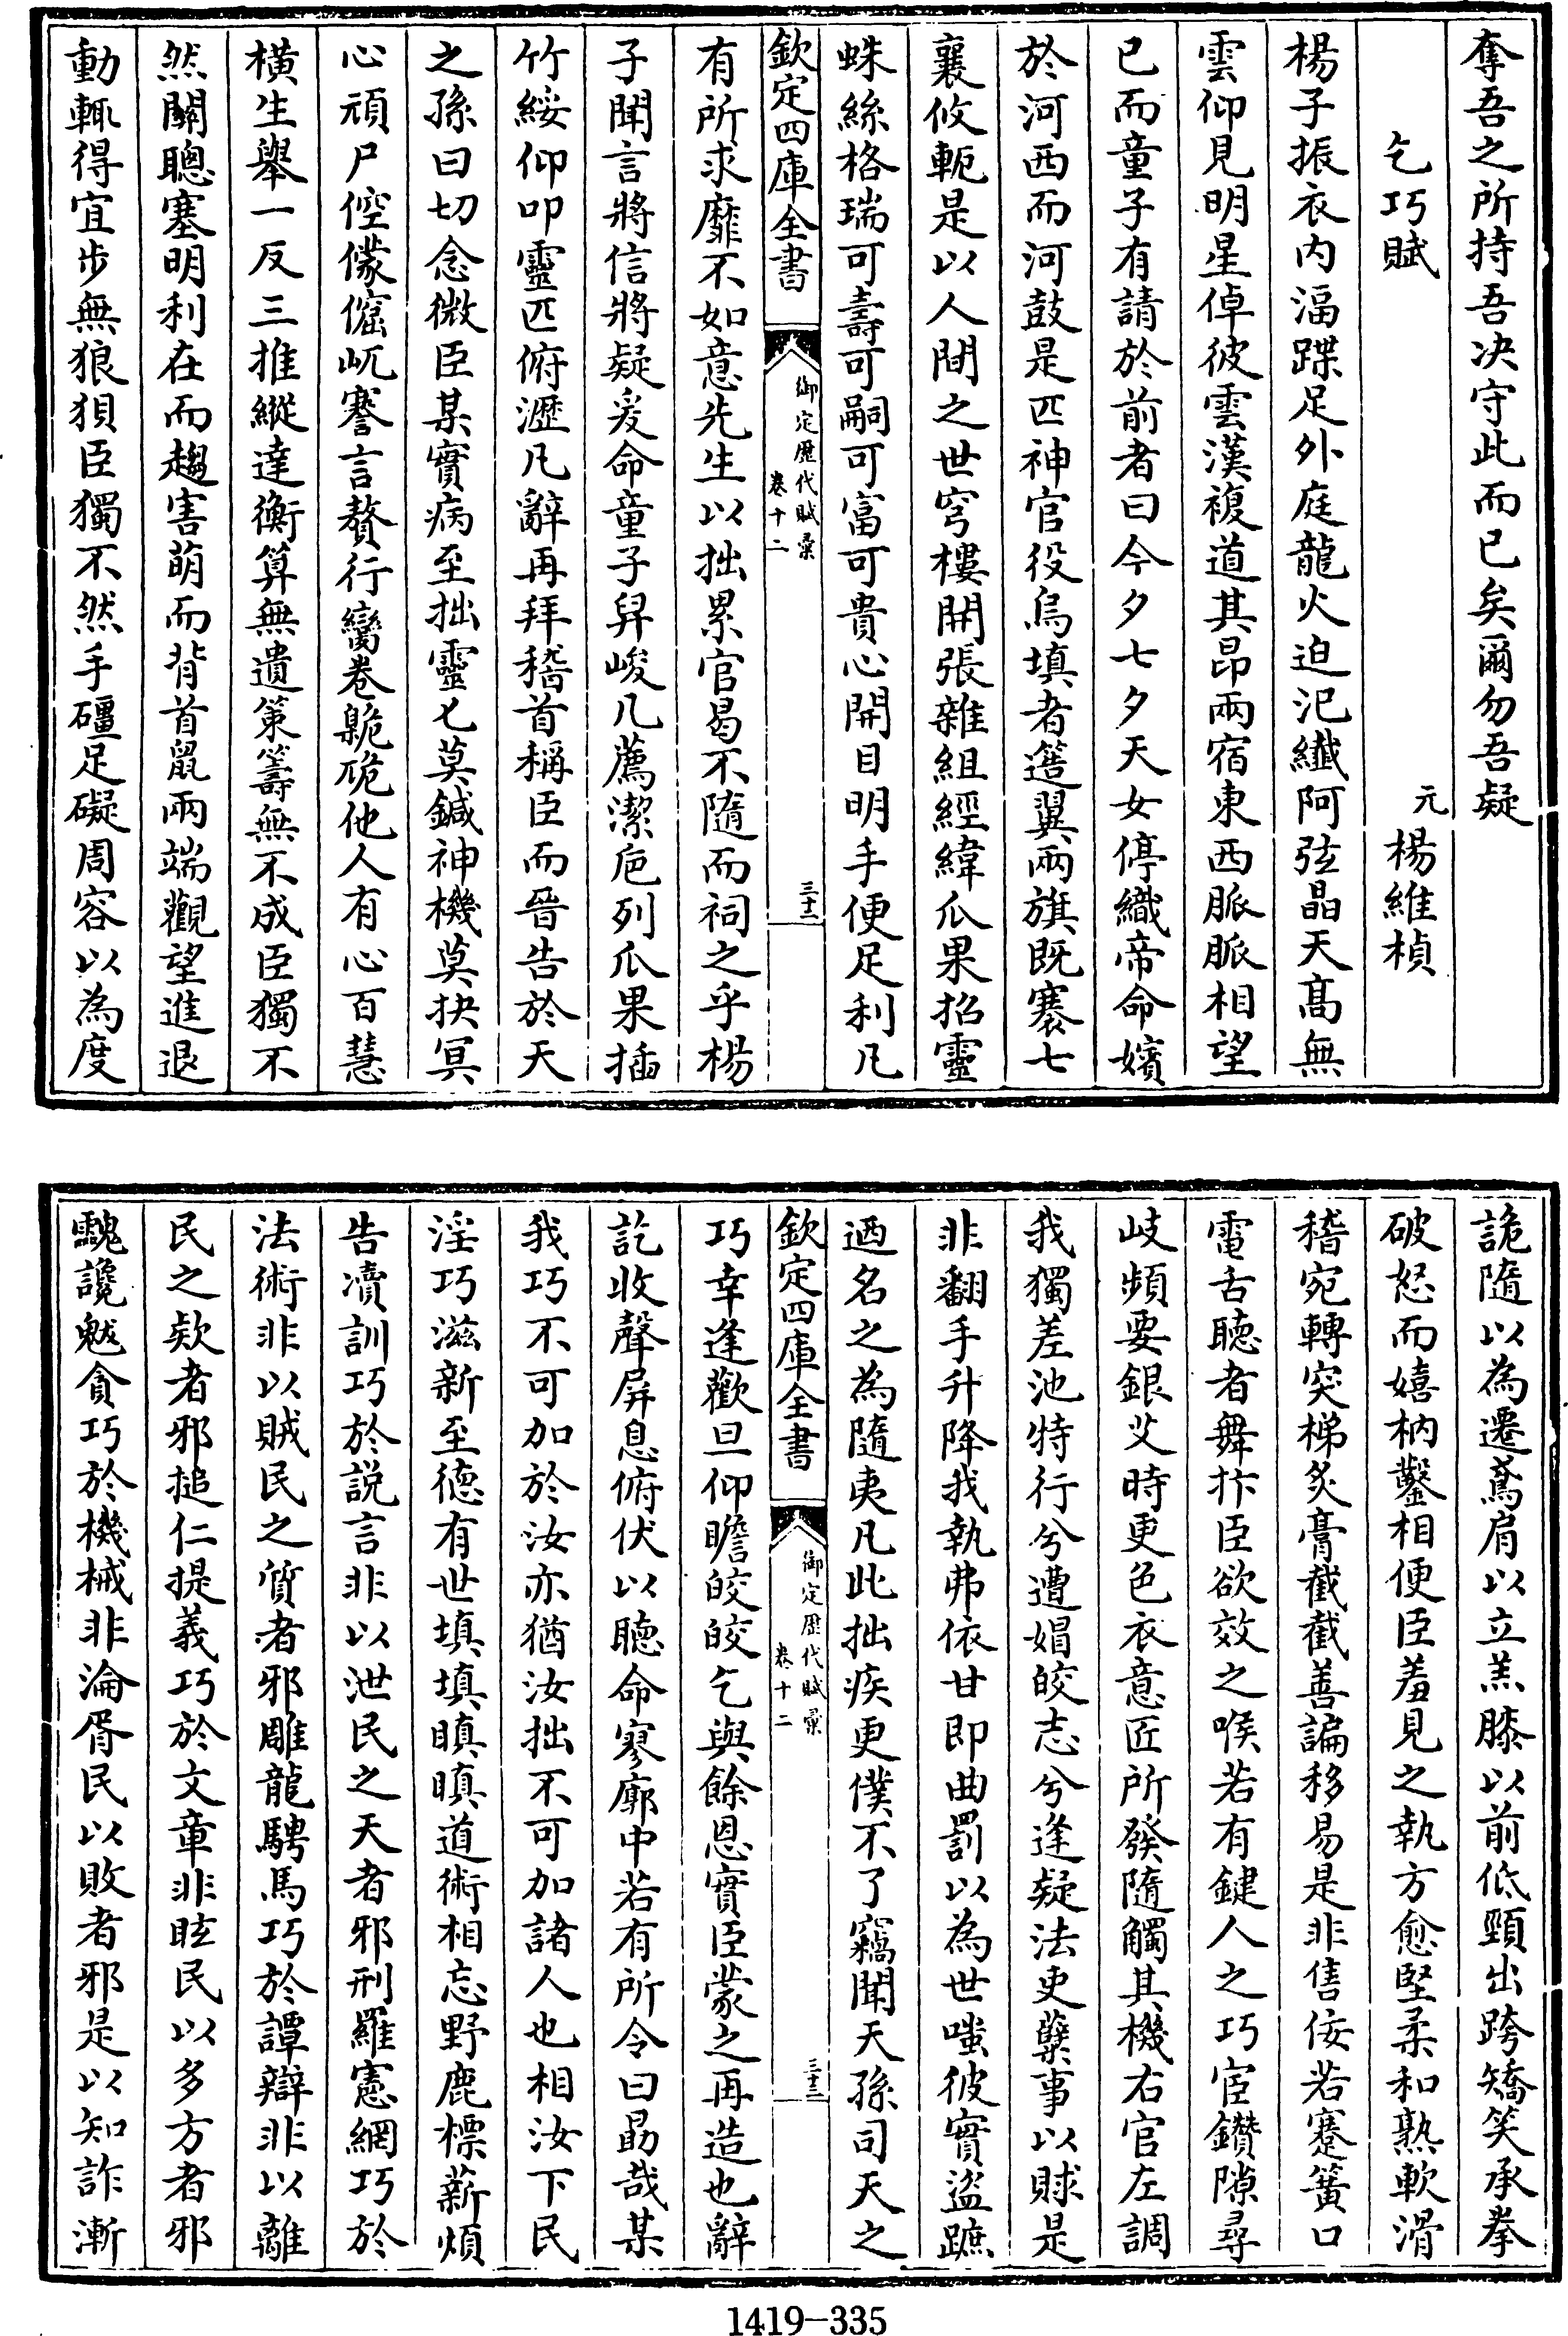 奪吾之所持吾决守此而已矣爾勿吾疑
乞巧賦
元楊維楨
楊子振衣内湢蹀足外庭龍火迫汜纖阿弦晶天髙無
雲仰見明星倬彼雲漢複道其昂兩宿東西脈脈相望
已而童子有請於前者曰今夕七夕天女停織帝命嬪
於河西而河鼓是匹神官役烏填者簉翼兩旗既褰七
襄攸軛是以人間之世穹樓開張雜組經緯瓜果招靈
蛛絲格瑞可壽可嗣可富可貴心開目明手便足利凡
欽定四庫全書
御定歷代賦彚
卷十二
三十二
有所求靡不如意先生以拙累官曷不隨而祠之乎楊
子聞言將信將疑爰命童子舁峻几薦潔巵列瓜果插
竹綏仰叩靈匹俯瀝凡辭再拜稽首稱臣而晉告於天
之孫曰切念微臣某實病至拙靈匕莫鍼神機莫抉冥
心頑尸倥儚倔屼謇言贅行臠卷臲卼他人有心百慧
橫生舉一反三推縱達衡算無遺策籌無不成臣獨不
然關聰塞明利在而趨害萌而背首鼠兩端觀望進退
動輒得宜步無狼狽臣獨不然手礓足礙周容以為度
詭隨以為遷鳶肩以立羔膝以前低頸出跨矯笑承拳
破怒而嬉枘鑿相便臣羞見之執方愈堅柔和熟軟滑
稽宛轉突梯炙膏截截善諞移易是非售佞若蹇簧口
電舌聽者舞抃臣欲效之喉若有鍵人之巧宦鑽隙尋
岐頻要銀艾時更色衣意匠所發隨觸其機右官左調
我獨差池特行兮遭媢皎志兮逢疑法吏櫱事以賕是
非翻手升降我執弗依甘即曲罰以為世嗤彼實盜蹠
迺名之為隨夷凡此拙疾更僕不了竊聞天孫司天之
欽定四庫全書
御定歷代賦彚
卷十二
三十三
巧幸逢歡旦仰瞻皎皎乞與餘恩實臣蒙之再造也辭
訖收聲屏息俯伏以聽命寥廓中若有所令曰勗哉某
我巧不可加於汝亦猶汝拙不可加諸人也相汝下民
淫巧滋新至德有世填填瞋瞋道術相忘野鹿標薪煩
告凟訓巧於説言非以泄民之天者邪刑羅憲網巧於
法術非以賊民之質者邪雕龍騁馬巧於譚辯非以離
民之欵者邪搥仁提義巧於文章非眩民以多方者邪
䰟讒魃貪巧於機械非淪胥民以敗者邪是以知詐漸
1419-335